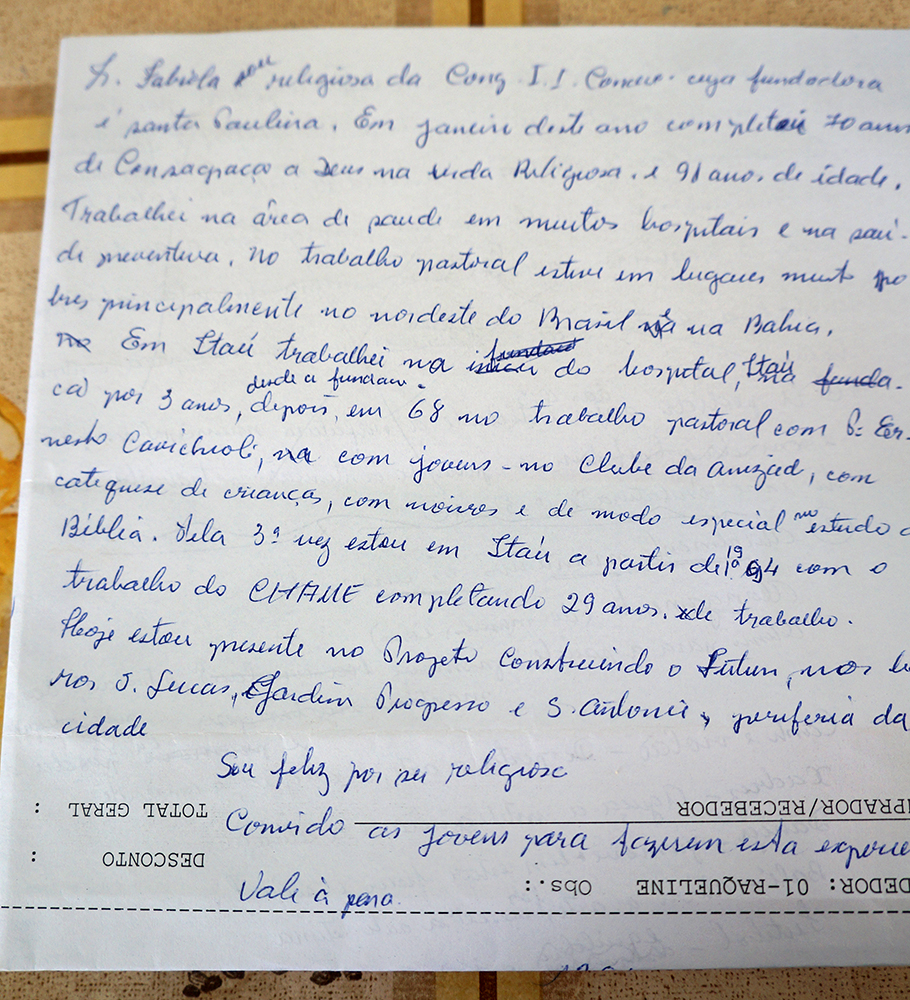 Ir. Fabiola sou religiosa da Cong. I.I. Concei. cuja fundadora
é santa Paulina. Em janeiro deste ano completei 70 anos
de Consagraço a Deus na vida Religiosa. e 91 anos, de idade.
Trabalhei na área de saude em muitos hospitais e na saú-
de preventiva. No trabalho pastoral estive em lugares muito po
bres principalmente no nordeste do Brasil na Bahia.
Em Itaú trabalhei na do hospital, Itaú
desde a fundaca
por 3 anos, depois, em 68 no trabalho pastoral com P. Er-
nesto Cavichioli, com jovens - no Clube da amizad, com
catequese de crianças, com noivos e de modo especial no estudo
Bíblia. Pela 3ª vez estou em Itaú a partir de 1994 com o
trabalho do CHAME completando 29 anos. de trabalho.
Hoje estou presente no Projeto Construindo o Futuro, nos
ros J. Lucas, Jardim Progresso e S. Antonio, periferia da
cidade
Sou feliz por ser religiosa
TOTAL GERAL :
PRADOR/RECEBEDOR
Convido as jovens para fazerem esta
DESCONTO :
DEDOR: 01-RAQUELINE Obs.:
Vale à pena.